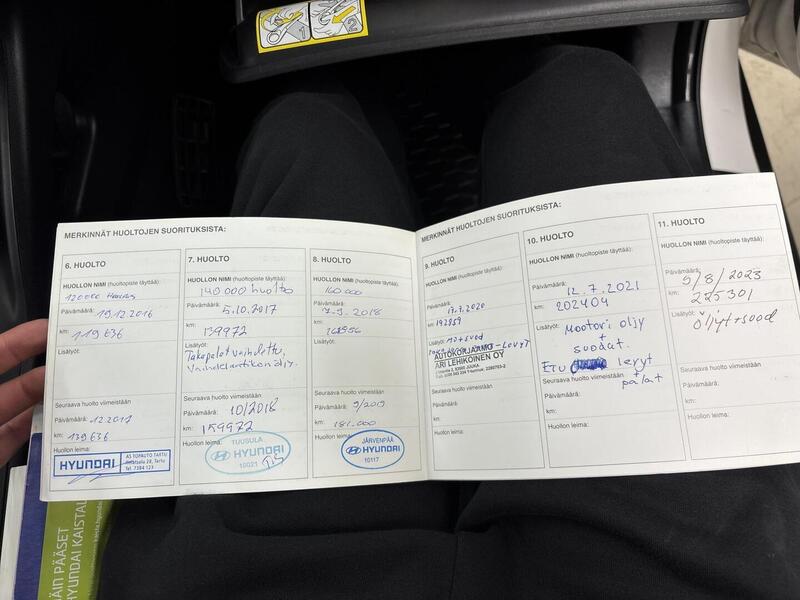 1
2
MERKINNÄT HUOLTOJEN SUORITUKSISTA:
6. HUOLTO
HUOLLON NIMI (huoltopiste täyttää):
120000
Päivämäärä: 19.12.2016
km: 119636
Lisätyöt:
Seuraava huolto viimeistään
Päivämäärä: 12.2017
km: 139636
Huollon leima:
HYUNDAI
AS TOPAUTO TARTU
Tel. 7304 123
7. HUOLTO
HUOLLON NIMI (huoltopiste täyttää):
140 000 huolto
Päivämäärä: 5.10.2017
km: 139972
Lisätyöt:
Takapalat vaihdettu,
Vaihdelaatikonöljy.
Seuraava huolto viimeistään
Päivämäärä: 10/2018
km: 159972
Huollon leima:
TUUSULA
HYUNDAI
10021
8. HUOLTO
HUOLLON NIMI (huoltopiste täyttää):
160 000
Päivämäärä: 2018
km:
Lisätyöt:
Seuraava huolto viimeistään
Päivämäärä: 9/2019
km: 181.000
Huollon leima:
JÄRVENPÄÄ
HYUNDAI
10117
MERKINNÄT HUOLTOJEN SUORITUKSISTA:
9. HUOLTO
HUOLLON NIMI (huoltopiste täyttää):
Päivämäärä: 2020
km: 192859
Lisätyöt:
AUTOKORJAAMO
ARI LEHIKOINEN OY
Seuraava huolto viimeistään
Päivämäärä:
km:
Huollon leima:
10. HUOLTO
HUOLLON NIMI (huoltopiste täyttää):
Päivämäärä: 12.7.2021
km: 202404
Lisätyöt: Moottori öljy
+
suodat.
Etu levyt
+ palat
Seuraava huolto viimeistään
Päivämäärä:
km:
Huollon leima:
11. HUOLTO
HUOLLON NIMI (huoltopiste täyttää):
Päivämäärä: 5/8/2023
km: 225301
Lisätyöt: Öljyt+suod
Seuraava huolto viimeistään
Päivämäärä:
km:
Huollon leima:
ÄIN PÄÄSET
HYUNDAI KAISTAL